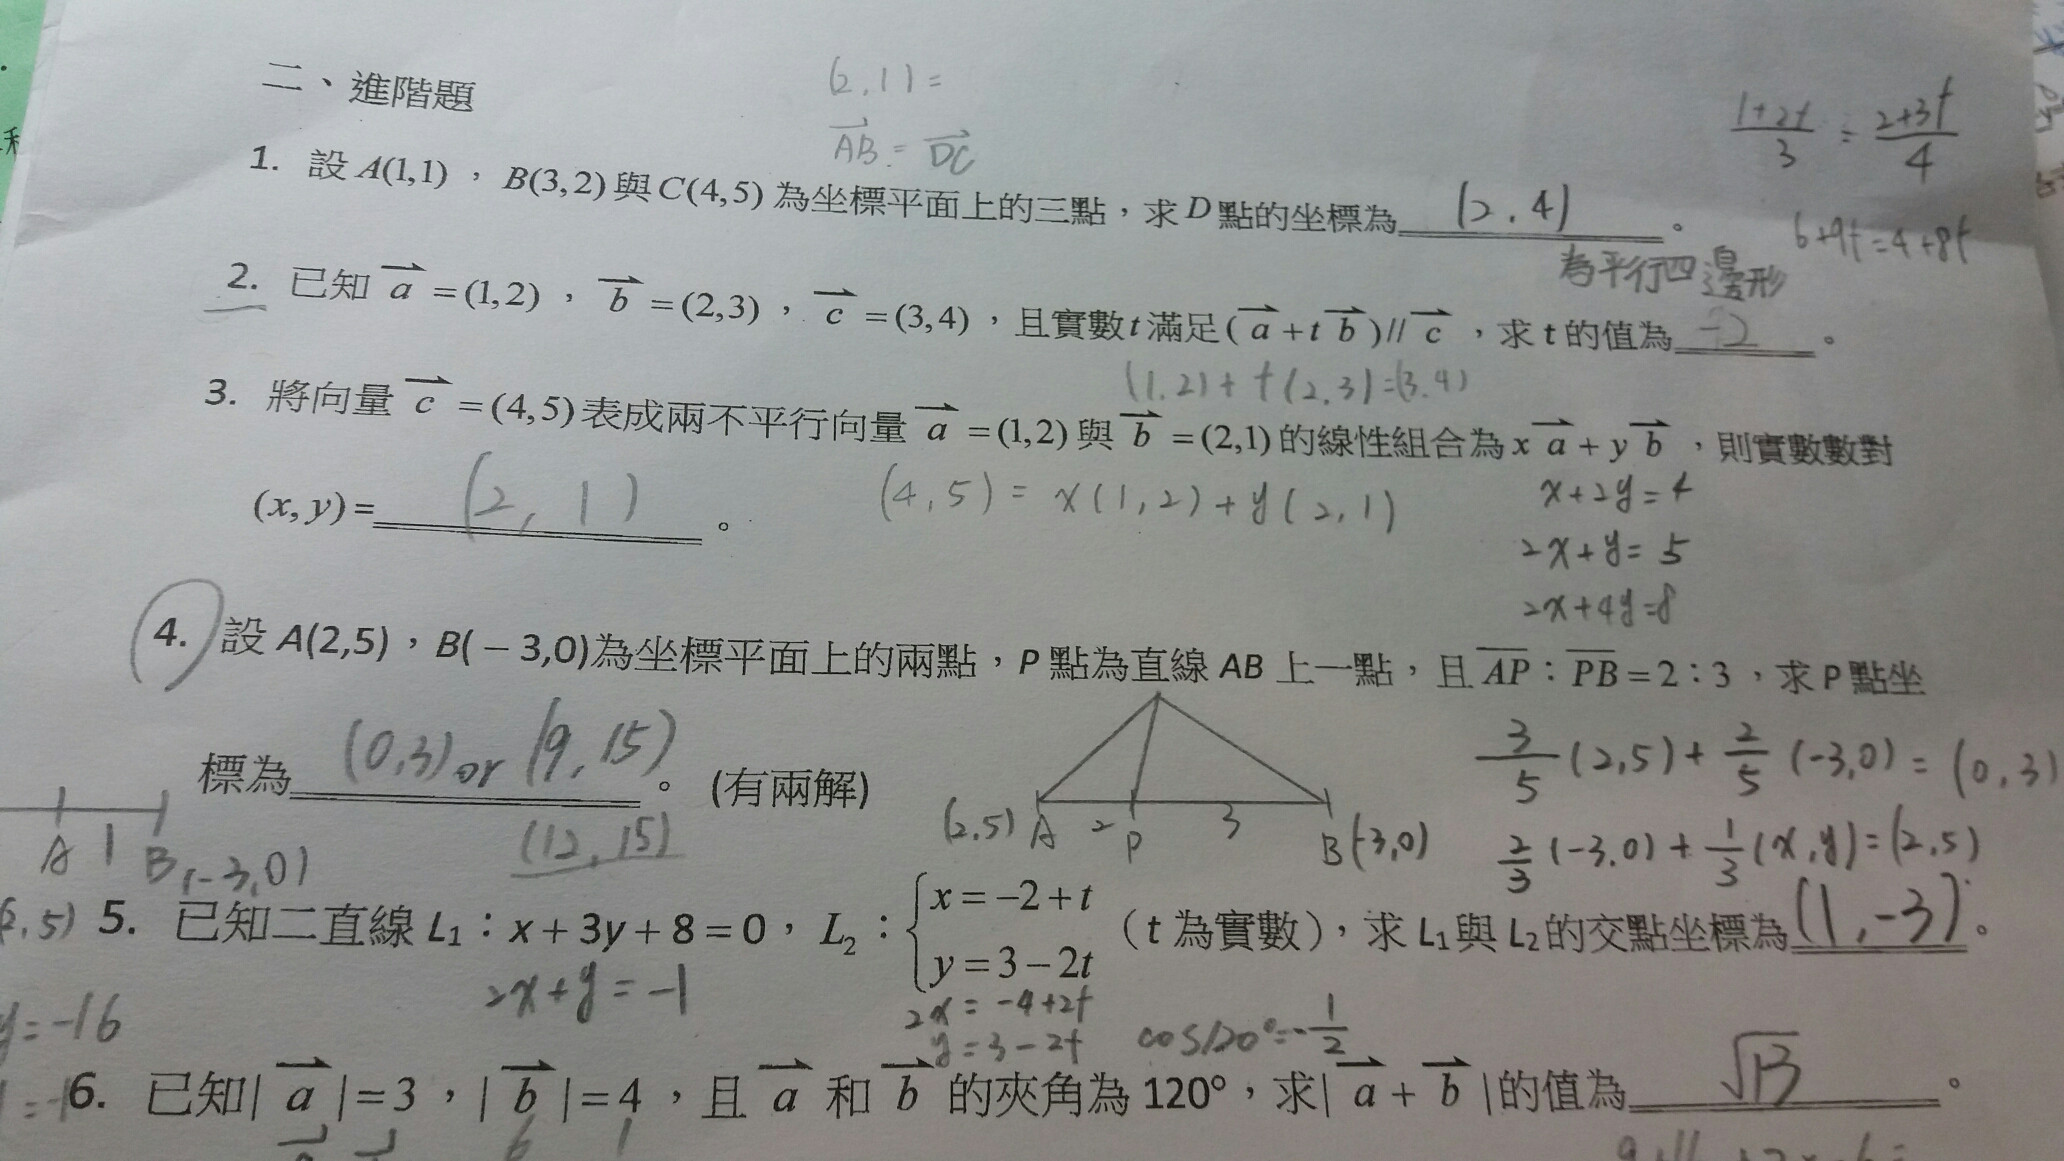 二、進階題
(2,1)=
AB = DC
1+2t/3 = 2+3t/4
1. 設 A(1,1),B(3,2)與C(4,5) 為坐標平面上的三點,求D點的坐標為 (2,4) 。
6+9t=4+8t
為平行四邊形
2. 已知 a =(1,2), b =(2,3), c =(3,4),且實數t滿足( a +t b )// c ,求 t 的值為 -2 。
(1,2)+t(2,3)=(3,4)
3. 將向量 c =(4,5)表成兩不平行向量 a =(1,2)與 b =(2,1)的線性組合為 x a + y b ,則實數數對
(x, y)= (2, 1) 。
(4,5) = x(1,2)+y(2,1)
x+2y=4
2x+y=5
2x+4y=8
4. 設 A(2,5),B(-3,0)為坐標平面上的兩點,P 點為直線 AB 上一點,且 AP:PB=2:3,求 P 點坐
標為 (0,3) or (9,15) 。 (有兩解)
(12,15)
(2,5) A 2 P 3 B(-3,0)
3/5 (2,5) + 2/5 (-3,0) = (0,3)
2/3 (-3,0) + 1/3 (x,y) = (2,5)
A 1 B(-3,0)
5. 已知二直線 L1:x+3y+8=0,L2:{x=-2+t y=3-2t (t 為實數),求 L1與 L2的交點坐標為 (1,-3) 。
2x+y=-1
2x=-4+2t
y=3-2t
cos120°=-1/2
y=-16
6. 已知| a |=3,| b |=4,且 a 和 b 的夾角為 120°,求| a + b |的值為 √13 。